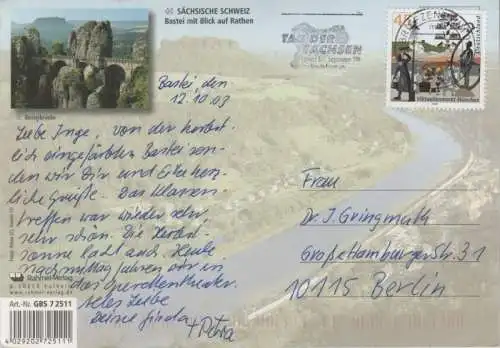 SÄCHSISCHE SCHWEIZ
Bastei mit Blick auf Rathen
TAG DER
SACHSEN
Basteibrücke
Bastei, den
12.10.03
Liebe Inge, von der herbst-
lich eingefärbten Bastei sen-
den wir Dir und Eke herz-
liche Grüße. Das Klassen-
treffen war wieder sehr,
sehr schön. Die Herbst-
sonne lacht auch. Heute
nachmittag fahren wir in
das
Viele Liebe
Deine
+ Petra
Frau
Dr. J. Gringmuth
Große Hamburger Str. 31
10115 Berlin
Rahmel-Verlag
www.rahmel-verlag.de
Art.-Nr. GBS 7 2511
4 029202 725111